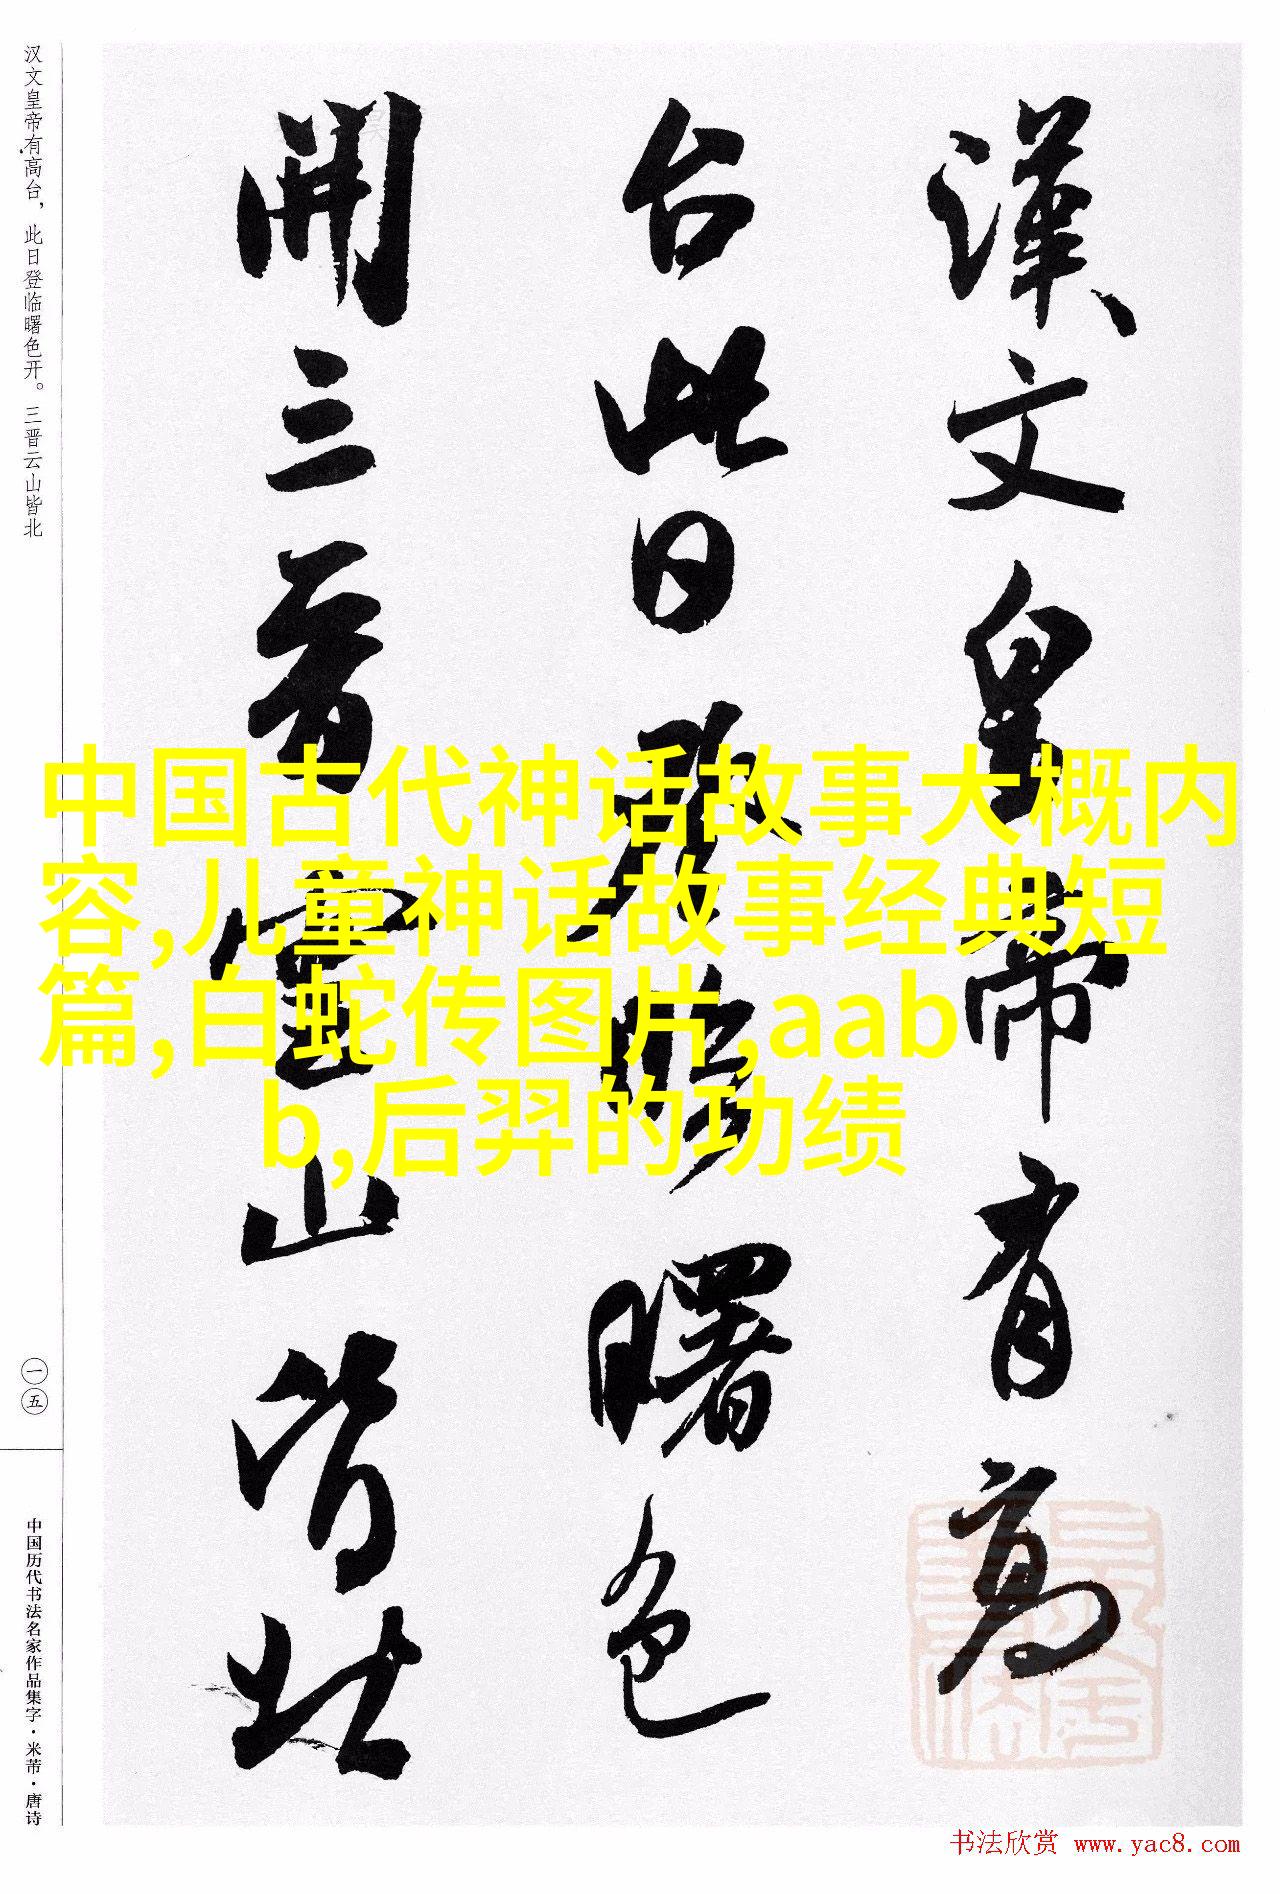 漢文皇帝有高
台此日登臨曙色
開三晋雲山皆北
中国古代神话故事大概内
容,儿童神话故事经典短
篇,白蛇传图片,aab
b,后羿的功绩
汉文皇帝有高台，此日登临曙色开。三晋云山皆北
一五
中国历代书法名家作品集字·米芾·唐诗
书法欣赏 www.yac8.com